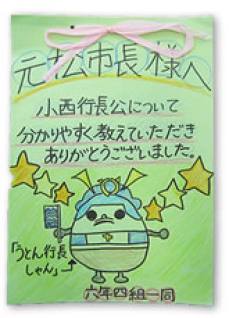 元松市長様へ
小西行長公について
分かりやすく教えていただき
ありがとうございました。
「うとん行長
しゃん」
六年四組一同